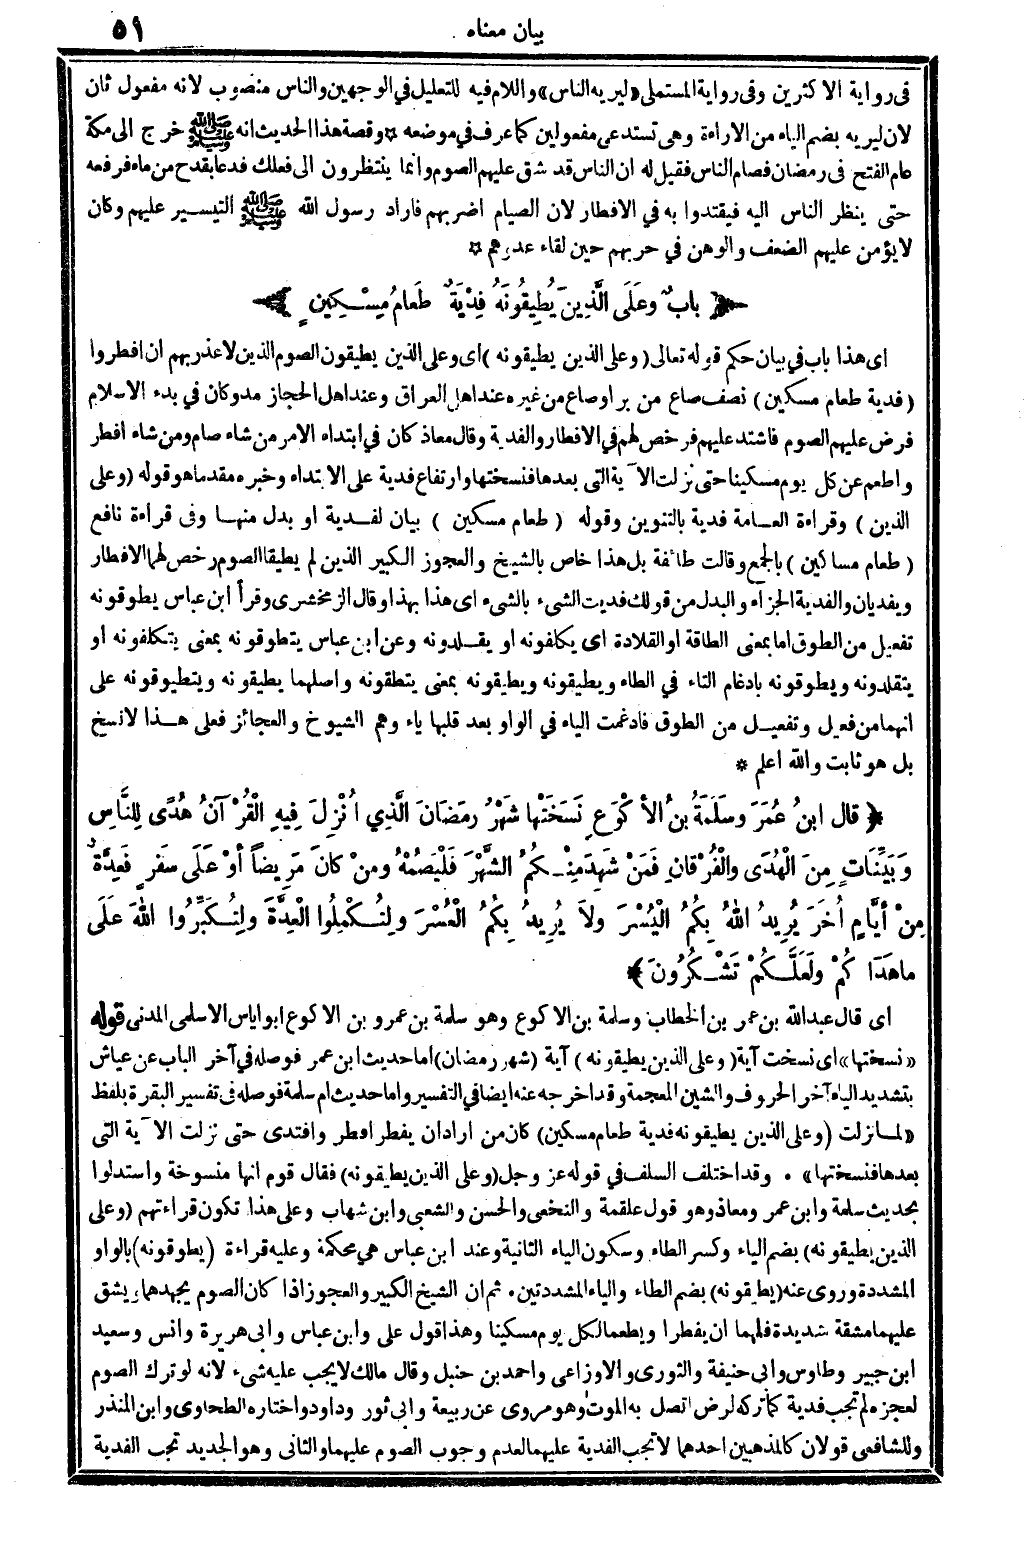 بيان معناه ٥١
فى رواية الاكثرين وفى رواية المستملى «ليريه الناس» واللام فيه للتعليل في الوجهين والناس منصوب لانه مفعول ثان
لان ليريه بضم الياء من الاراءة وهى تستدعى مفعولين كما عرف في موضعه ✡ وقصة هذا الحديث انه ﷺ خرج الى مكة
عام الفتح فى رمضان فصام الناس فقيل له ان الناس قد شق عليهم الصوم وانما ينتظرون الى فعلك فدعا بقدح من ماء فرفعه
حتى ينظر الناس اليه فيقتدوا به في الافطار لان الصيام اضربهم فاراد رسول الله ﷺ التيسير عليهم وكان
لا يؤمن عليهم الضعف والوهن في حربهم حين لقاء عدوهم ✡
﴿ بابٌ وعَلَى الَّذِينَ يُطِيقُونَهُ فِدْيَةٌ طَعَامُ مِسْكِينٍ ﴾
اى هذا باب في بيان حكم قوله تعالى (وعلى الذين يطيقونه) اى وعلى الذين يطيقون الصوم الذين لا عذر بهم ان افطروا
(فدية طعام مسكين) نصف صاع من بر او صاع من غيره عند اهل العراق وعند اهل الحجاز مد وكان في بدء الاسلام
فرض عليهم الصوم فاشتد عليهم فرخص لهم في الافطار والفدية وقال معاذ كان في ابتداء الامر من شاء صام ومن شاء افطر
واطعم عن كل يوم مسكينا حتى نزلت الآية التى بعدها فنسختها وارتفاع فدية على الابتداء وخبره مقدما هو قوله (وعلى
الذين) وقراءة العامة فدية بالتنوين وقوله (طعام مسكين) بيان لفدية او بدل منها وفى قراءة نافع
(طعام مساكين) بالجمع وقالت طائفة بل هذا خاص بالشيخ والعجوز الكبير الذين لم يطيقا الصوم رخص لهما الافطار
ويفديان والفدية الجزاء والبدل من قولك فديت الشىء بالشىء اى هذا بهذا وقال الزمخشرى وقرأ ابن عباس يطوقونه
تفعيل من الطوق اما بمعنى الطاقة او القلادة اى يكلفونه او يقلدونه وعن ابن عباس يتطوقونه بمعنى يتكلفونه او
يتقلدونه ويطوقونه بادغام التاء في الطاء ويطيقونه ويطيقونه بمعنى يتطقونه واصلهما يطيقونه ويتطيوقونه على
انهما من فعيل وتفعيل من الطوق فادغمت الياء في الواو بعد قلبها ياء وهم الشيوخ والعجائز فعلى هذا لا نسخ
بل هو ثابت والله اعلم *
﴿ قال ابنُ عُمَرَ وسَلَمَةُ بنُ الأكْوَعِ نَسَخَتْها شَهْرُ رمَضَانَ الَّذِي أُنْزِلَ فِيهِ الْقُرْآنُ هُدًى لِلنَّاسِ
وَبَيِّنَاتٍ مِنَ الْهُدَى والْفُرْقانِ فَمَنْ شَهِدَ مِنْكُمُ الشَّهْرَ فَلْيَصُمْهُ ومنْ كانَ مَرِيضاً أوْ عَلَى سَفَرٍ فَعِدَّةٌ
مِنْ أيَّامٍ أُخَرَ يُرِيدُ اللهُ بِكُمُ الْيُسْرَ ولاَ يُرِيدُ بِكُمُ الْعُسْرَ ولتُكْمِلُوا الْعِدَّةَ ولِتُكَبِّرُوا اللهَ عَلَى
ماهَدَا كُمْ ولَعَلَّكُمْ تَشْكُرُونَ ﴾
اى قال عبدالله بن عمر بن الخطاب وسلمة بن الاكوع وهو سلمة بن عمرو بن الاكوع ابو اياس الاسلمى المدنى قوله
«نسختها» اى نسخت آية (وعلى الذين يطيقونه) آية (شهر رمضان) اما حديث ابن عمر فوصله في آخر الباب عن عياش
بتشديد الياء آخر الحروف والشين المعجمة وقد اخرجه عنه ايضا في التفسير واما حديث ام سلمة فوصله فى تفسير البقرة بلفظ
«لما نزلت (وعلى الذين يطيقونه فدية طعام مسكين) كان من اراد ان يفطر افطر وافتدى حتى نزلت الآية التى
بعدها فنسختها» • وقد اختلف السلف في قوله عز وجل (وعلى الذين يطيقونه) فقال قوم انها منسوخة واستدلوا
بحديث سلمة وابن عمر ومعاذ وهو قول علقمة والنخعى والحسن والشعبى وابن شهاب وعلى هذا تكون قراءتهم (وعلى
الذين يطيقونه) بضم الياء وكسر الطاء وسكون الياء الثانية وعند ابن عباس هي محكمة وعليه قراءة (يطوقونه) بالواو
المشددة وروى عنه (يطيقونه) بضم الطاء والياء المشددتين • ثم ان الشيخ الكبير والعجوز اذا كان الصوم يجهدهما ويشق
عليهما مشقة شديدة فلهما ان يفطرا ويطعما لكل يوم مسكينا وهذا قول على وابن عباس وابى هريرة وانس وسعيد
ابن جبير وطاوس وابى حنيفة والثورى والاوزاعى واحمد بن حنبل وقال مالك لا يجب عليه شىء لانه لو ترك الصوم
لعجزه لم تجب فدية كما تركه لمرض اتصل به الموت وهو مروى عن ربيعة وابى ثور وداود واختاره الطحاوى وابن المنذر
وللشافعى قولان كالمذهبين احدهما لا تجب الفدية عليهما لعدم وجوب الصوم عليهما والثانى وهو الجديد تجب الفدية